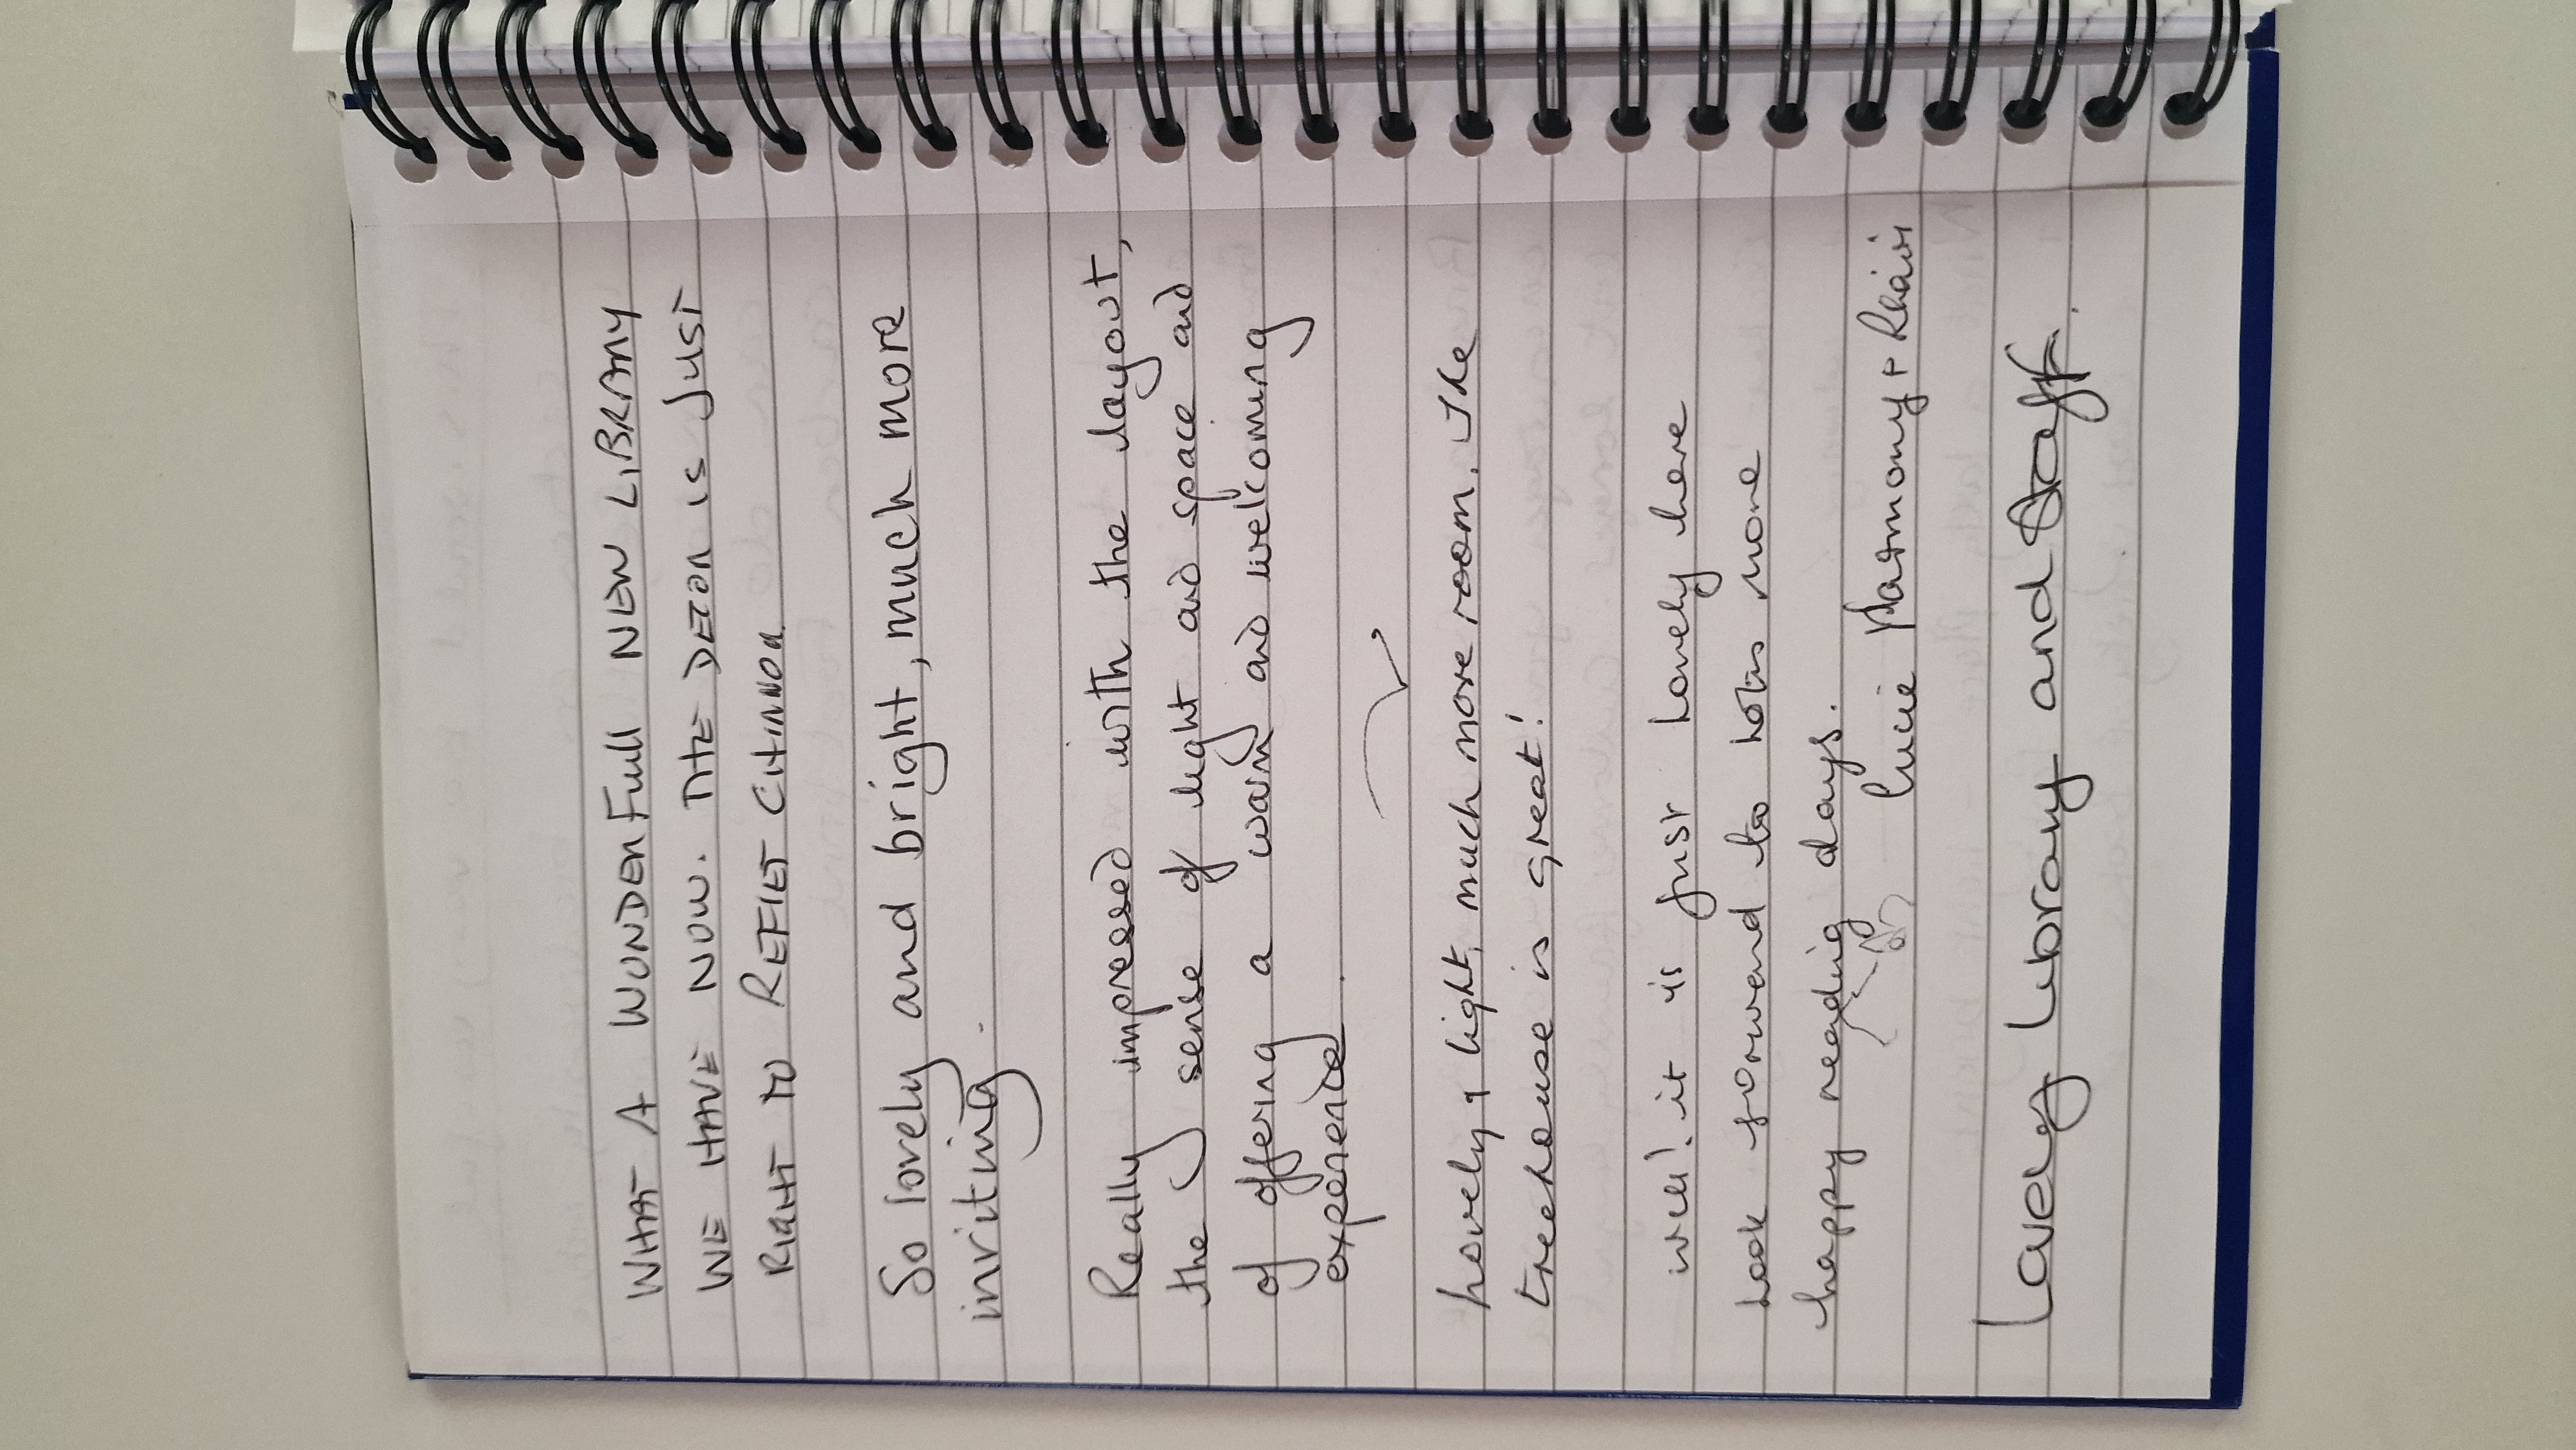 WHAT A WONDERFull NEW LIBRARY
WE HAVE NOW. THE DECOR IS JUST
RIGHT TO REFLECT CHINNOR.
So lovely and bright, much more
inviting.
Really impressed with the layout,
the sense of light and space and
of offering a warm and welcoming
experience.
Lovely & light, much more room. The
treehouse is great!
well! it is just lovely here
Look forward to lots more
happy reading days.
Lucie Harmony & Rháiri
Lovely Library and Staff.